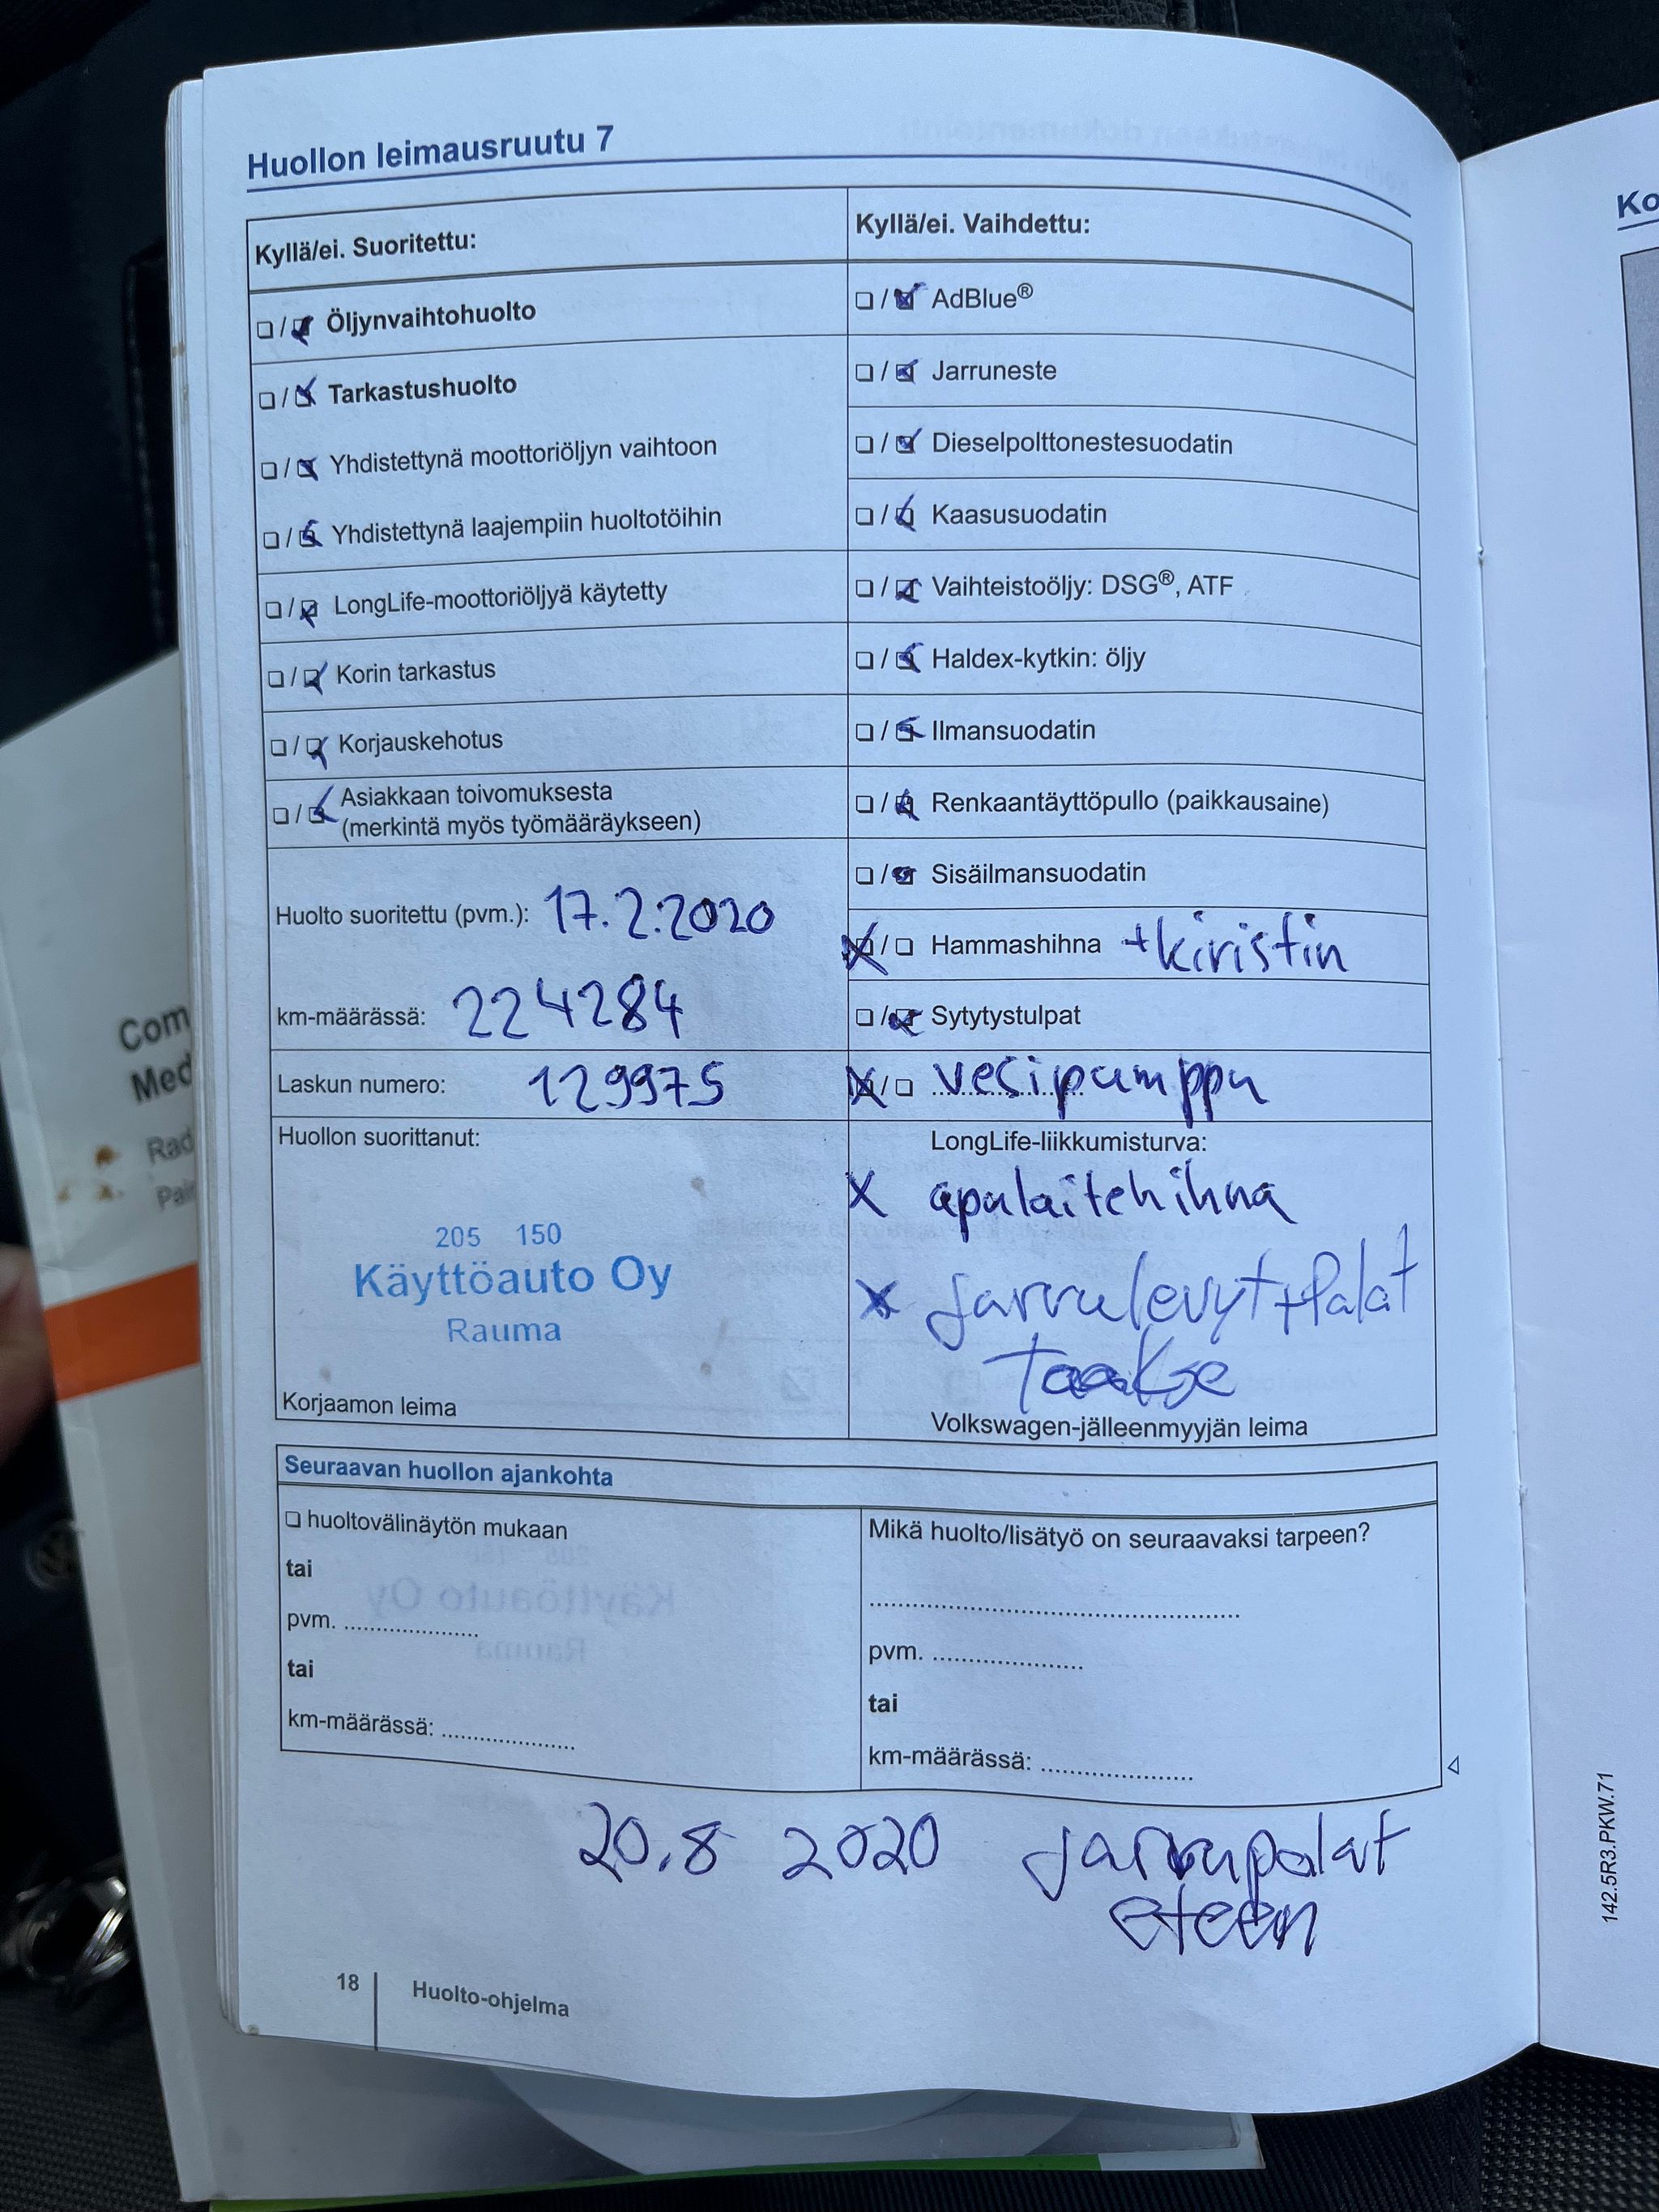 Huollon leimausruutu 7
Kyllä/ei. Suoritettu:
Öljynvaihtohuolto
Tarkastushuolto
Yhdistettynä moottoriöljyn vaihtoon
Yhdistettynä laajempiin huoltotöihin
LongLife-moottoriöljyä käytetty
Korin tarkastus
Korjauskehotus
Asiakkaan toivomuksesta
(merkintä myös työmääräykseen)
Huolto suoritettu (pvm.): 17.2.2020
km-määrässä: 224284
Laskun numero: 129975
Huollon suorittanut:
205 150
Käyttöauto Oy
Rauma
Korjaamon leima
Kyllä/ei. Vaihdettu:
AdBlue®
Jarruneste
Dieselpolttonestesuodatin
Kaasusuodatin
Vaihteistoöljy: DSG®, ATF
Haldex-kytkin: öljy
Ilmansuodatin
Renkaantäyttöpullo (paikkausaine)
Sisäilmansuodatin
Hammashihna +kiristin
Sytytystulpat
vesipumppu
LongLife-liikkumisturva:
X apulaitehihna
X jarrulevyt+Palat
Taakse
Volkswagen-jälleenmyyjän leima
Seuraavan huollon ajankohta
huoltovälinäytön mukaan
tai
pvm. ....................
tai
km-määrässä: ....................
Mikä huolto/lisätyö on seuraavaksi tarpeen?
pvm. ....................
tai
km-määrässä: ....................
20.8 2020 jarrupalat
eteen
18 Huolto-ohjelma
142.5R3.PKW.71
Ko
Com
Med
Rad